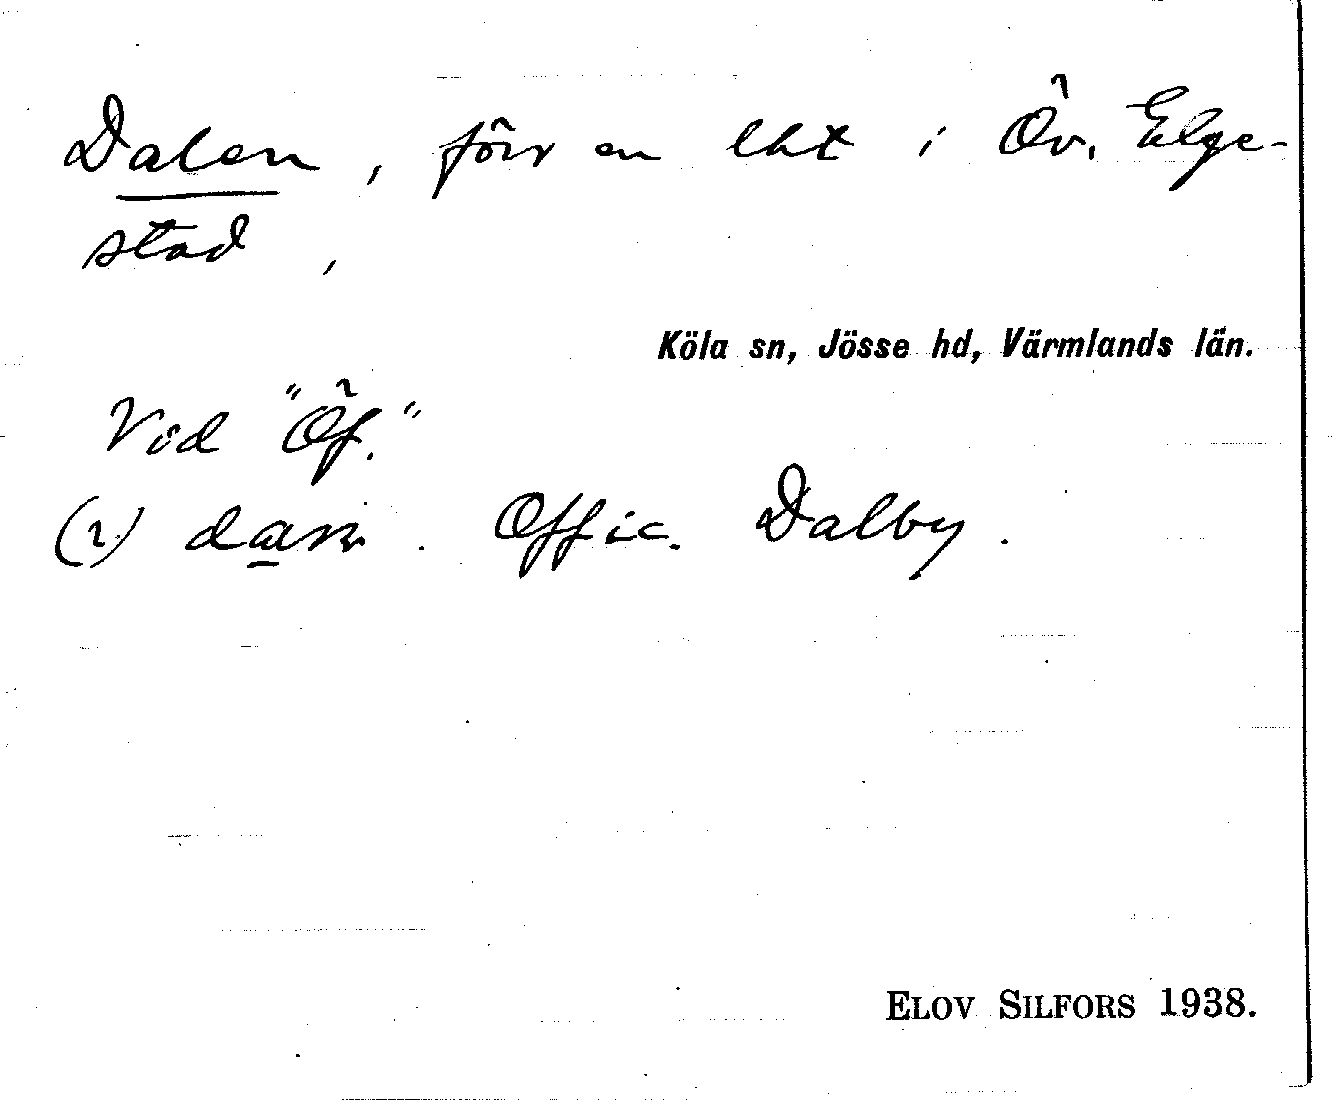 Dalen, förr en lht i Öv. Elge-
stad,
Köla sn, Jösse hd, Värmlands län.
Vid "Öf."
(2) Offic. Dalby.
ELOV SILFORS 1938.